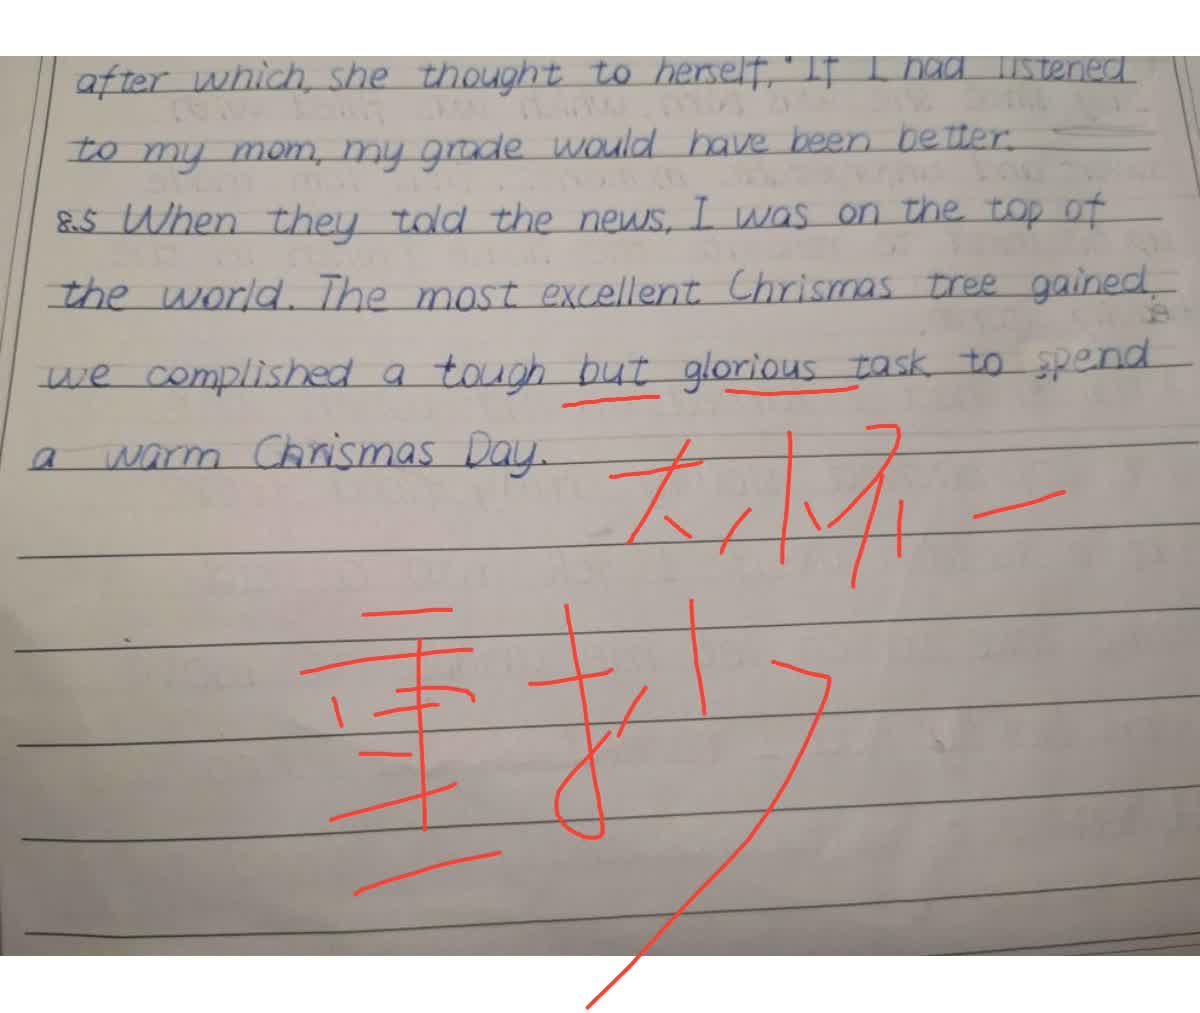 after which, she thought to herself, "If I had listened
to my mom, my grade would have been better.
8.5 When they told the news, I was on the top of
the world. The most excellent Chrismas tree gained.
we complished a tough but glorious task to spend
a warm Chrismas Day.
重抄